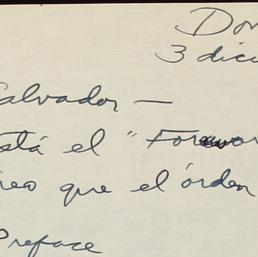 Dom
3 dici
Salvador —
está el "Forewor
creo que el órden
Preface